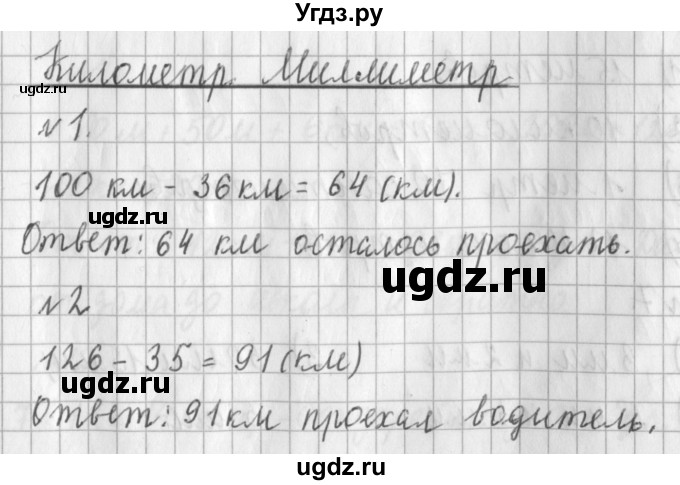 Угдз.ру
Километр. Миллиметр
gdz.ru
N 1.
100 км - 36 км = 64 (км).
ugdz.ru
Ответ: 64 км осталось проехать.
ugdz.ru
N 2
126 - 35 = 91 (км)
ugdz.ru
Ответ: 91 км проехал водитель.
ugdz.ru
ugdz.ru